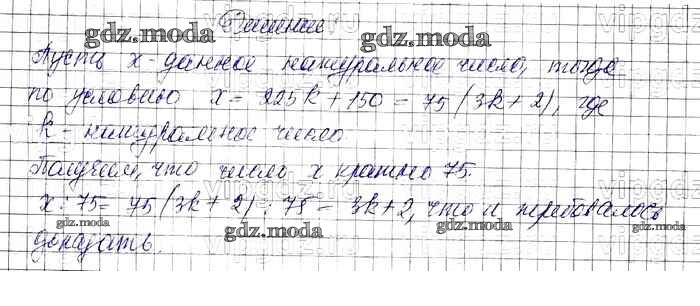 Решение
Пусть x - данное натуральное число, тогда
по условию x = 225k + 150 = 75 (3k + 2), где
k - натуральное число
Получаем, что число x кратно 75.
x : 75 = 75 (3k + 2) : 75 = 3k + 2, что и требовалось
доказать.
gdz.moda
gdz.moda
gdz.moda
gdz.moda
gdz.moda
gdz.moda